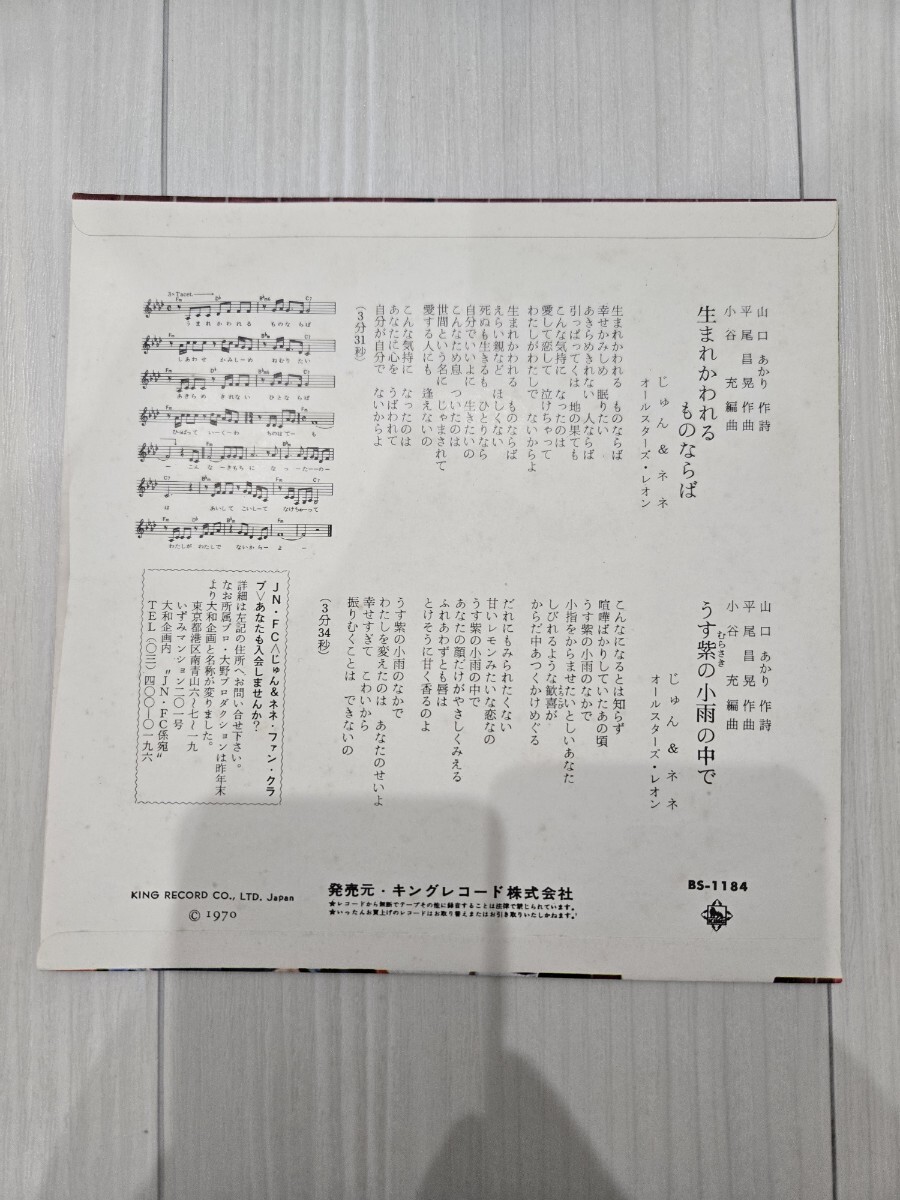 山口あかり 作詩
平尾昌晃 作曲
小谷充 編曲
生まれかわれる
ものならば
じゅん&ネネ
オールスターズ・レオン
生まれかわれる ものならば
幸せかみしめ 眠りたい
あきらめきれない 人ならば
引っぱってくは 地の果ても
こんな気持に なったのは
愛して恋して 泣けちゃって
わたしがわたしで ないからよ
生まれかわれる ものならば
えらい親など ほしくない
死ぬも生きるも ひとりなら
自分でいいよに 生きたいの
こんなため息 ついたのは
世間という名に じゃまされて
愛する人にも 逢えないの
こんな気持に なったのは
あなたに心を うばわれて
自分が自分で ないからよ
(3分31秒)
3×Tacet
うまれかわれる ものならば
しあわせ かみしーめ ねむりたい
あきらめ きれない ひとならば
ひっぱって いーくーわ ちのはてーも
ー こんな ーきもちに なっ ーたーのー
は あいして こいしーて なけちゃーって
わたしが わたしで ないからー よー
山口あかり 作詩
平尾昌晃 作曲
小谷充 編曲
うす紫の小雨の中で
むらさき
じゅん&ネネ
オールスターズ・レオン
こんなになるとは知らず
喧嘩ばかりしていたあの頃
うす紫の小雨のなかで
小指をからませたいとしいあなた
しびれるような歓喜が
よろこび
からだ中あつくかけめぐる
だれにもみられたくない
甘いレモンみたいな恋なの
うす紫の小雨の中で
あなたの顔だけがやさしくみえる
ふれあわずとも唇は
とけそうに甘く香るのよ
うす紫の小雨のなかで
わたしを変えたのは あなたのせいよ
幸せすぎて こわいから
振りむくことは できないの
(3分34秒)
JN・FC<じゅん&ネネ・ファン・クラ
ブ>あなたも入会しませんか?
詳細は左記の住所へお問い合せ下さい。
なお所属プロ・大野プロダクションは昨年末
より大和企画と名称が変りました。
東京都港区南青山六〜七〜一九
いずみマンション二〇一号
大和企画内 "JN・FC係宛"
TEL(〇三)四〇〇ー〇一九六
BS-1184
発売元・キングレコード株式会社
★レコードから無断でテープその他に録音することは法律で禁じられています。
★いったんお買上げのレコードはお取り替えまたはお引き取りいたしかねます。
KING RECORD CO., LTD. Japan
© 1970